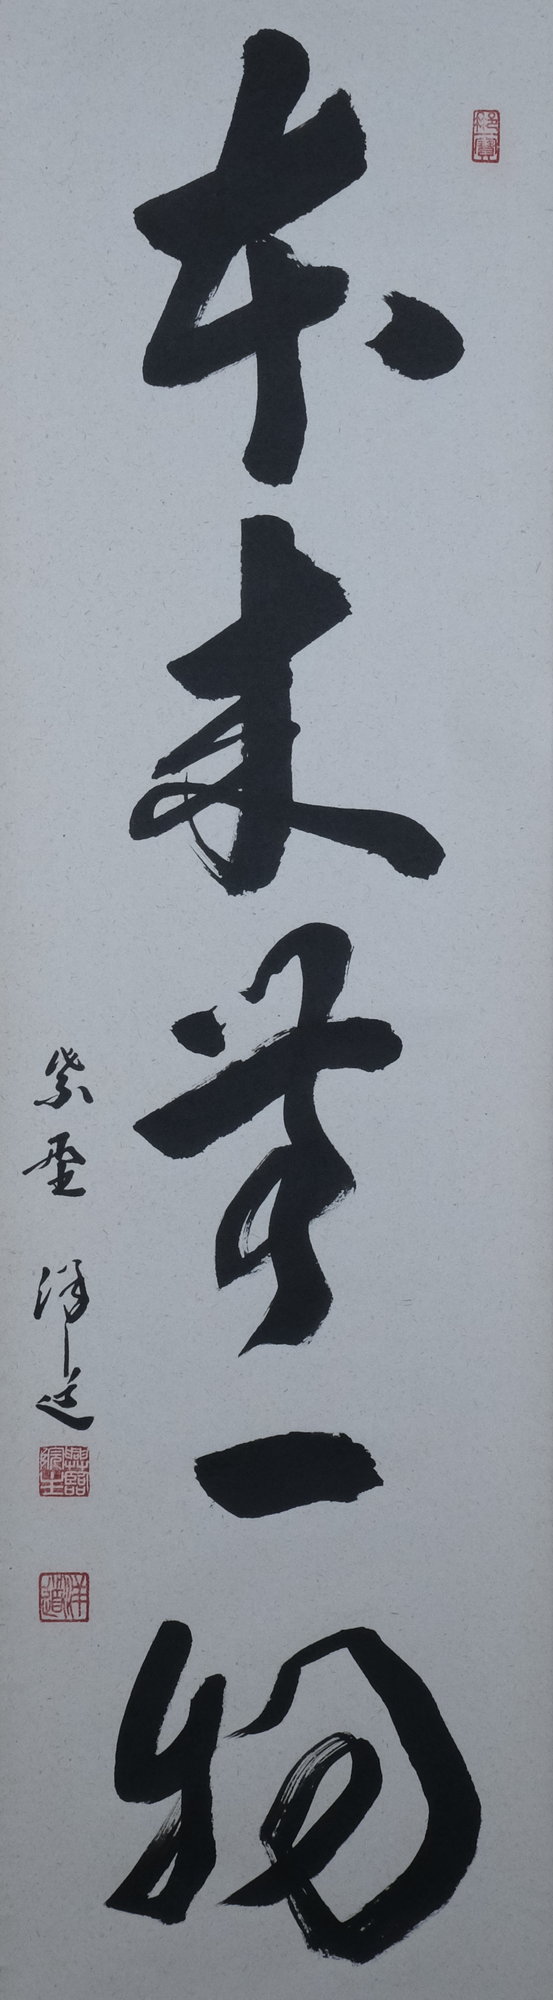 本来無一物
紫野 洋道